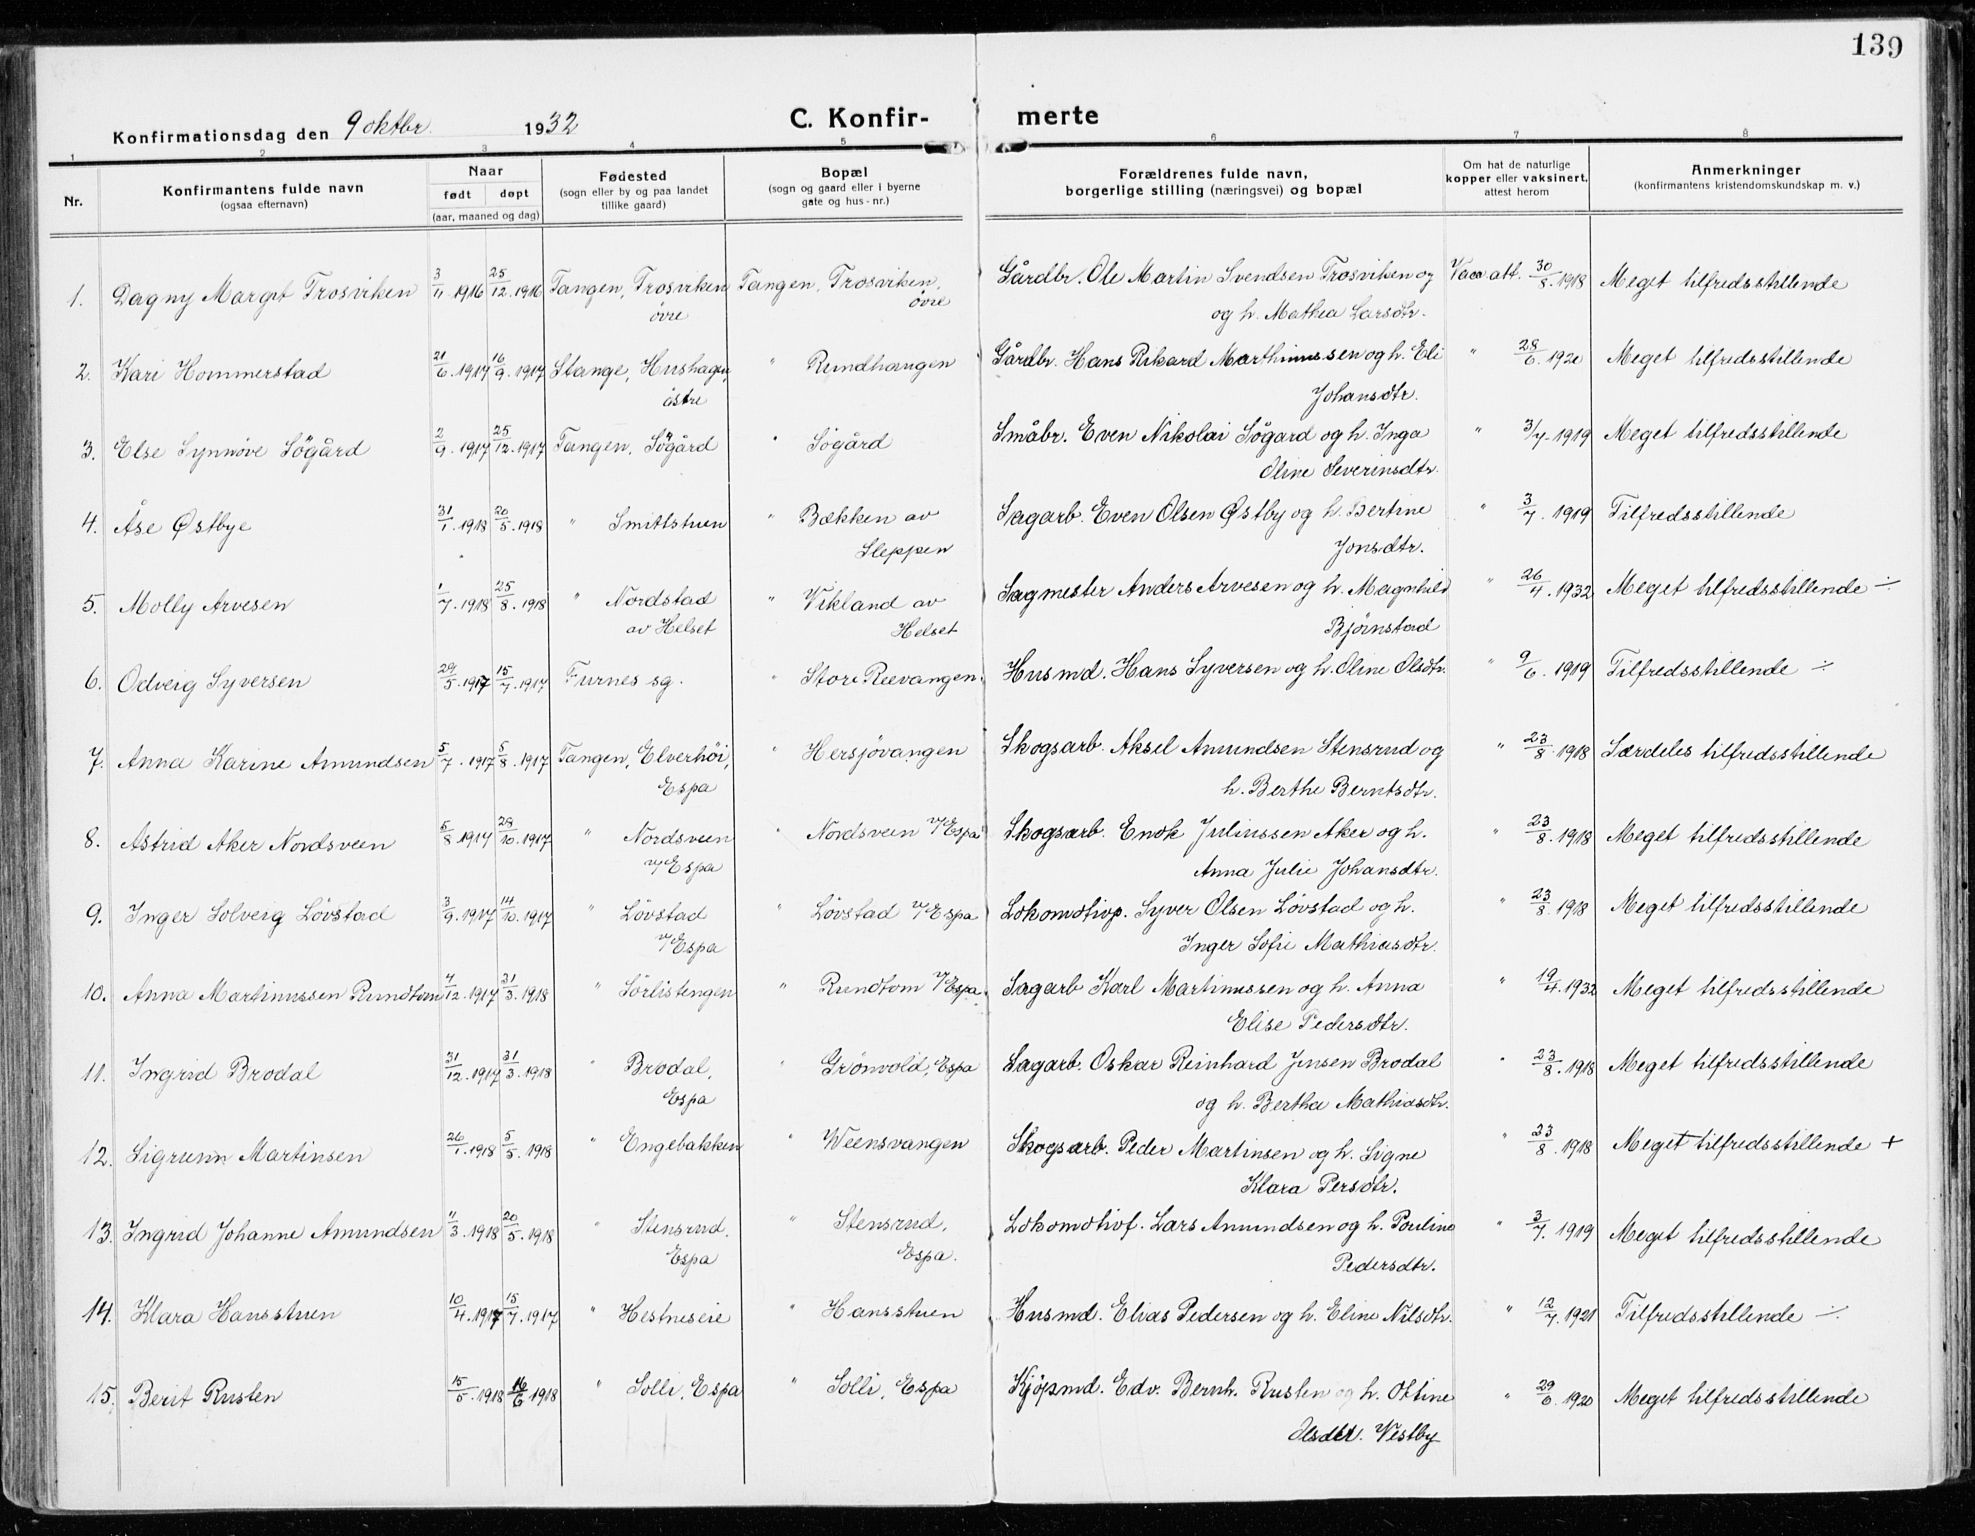 139
Konfirmationsdag den 9 oktbr. 1932 C. Konfir- merte
1 2 3 4 5 6 7 8
Nr. Konfirmantens fulde navn (ogsaa efternavn) Naar født døpt (aar, maaned og dag) Fødested (sogn eller by og paa landet tillike gaard) Bopæl (sogn og gaard eller i byerne gate og hus-nr.) Forældrenes fulde navn, borgerlige stilling (næringsvei) og bopæl Om hat de naturlige kopper eller vaksinert, attest herom Anmerkninger (konfirmantens kristendomskundskap m. v.)
1. Dagny Margit Trosviken 3/11 1916 25/12 1916 Tangen, Trosviken Tangen, Trosviken, Gårdbr. Ole Martin Svendsen Trosviken og Vacc att. 30/8 1918 Meget tilfredsstillende
øvre øvre og h. Mathea Larsdtr.
2. Kari Hommerstad 21/6 1917 16/9 1917 Stange, Hushagen, " Rundhaugen Gårdbr. Hans Rikard Marthinussen og h. Eli " 28/6 1920 Meget tilfredsstillende
østre Johansdtr.
3. Else Synnöve Sögård 2/9 1917 25/12 1917 Tangen, Sögård " Sögård Småbr. Even Nikolai Sögard og h. Inga " 3/7 1919 Meget tilfredsstillende
Oline Severinsdtr.
4. Åse Østbye 31/1 1918 20/5 1918 " Smittstuen " Bækken av Sagarb. Even Olsen Østby og h. Bertine " 3/7 1919 Tilfredsstillende
Sleppen Jonsdtr.
5. Molly Arvesen 1/7 1918 25/8 1918 " Nordstad " Vikland av Sagmester Anders Arvesen og h. Magnhild " 26/4 1932 Meget tilfredsstillende ÷
av Helset Helset Bjørnstad
6. Odveig Syversen 29/5 1917 15/7 1917 Furnes sg. " Store Reevangen. Husmd. Hans Syversen og h. Oline Olsdtr. " 9/6 1919 Tilfredsstillende ÷
7. Anna Karine Amundsen 5/7 1917 5/8 1917 Tangen, Elverhöi, " Hersjövangen Skogsarb. Aksel Amundsen Stensrud og " 23/8 1918 Særdeles tilfredsstillende
Espa h. Berthe Berntsdtr.
8. Astrid Aker Nordsveen 5/8 1917 28/10 1917 " Nordsveen " Nordsveen v/Espa Skogsarb. Enok Juliussen Aker og h. " 23/8 1918 Meget tilfredsstillende
v/Espa Anna Julie Johansdtr.
9. Inger Solveig Lövstad 3/9 1917 14/10 1917 " Lövstad " Lövstad v/Espa Lokomotivp. Syver Olsen Lövstad og h. " 23/8 1918 Meget tilfredsstillende
v/Espa Inger Sofie Mathiasdtr.
10. Anna Martinussen Rundtom 4/12 1917 31/3 1918 " Sörlistengen " Rundtom v/Espa. Sagarb Karl Martinussen og h. Anna " 19/4 1932 Meget tilfredsstillende
Elise Pedersdtr.
11. Ingrid Brodal 31/12 1917 31/3 1918 " Brodal, " Grönvold, Espa Sagarb. Oskar Reinhard Jensen Brodal " 23/8 1918 Meget tilfredsstillende
Espa og h. Bertha Mathiasdtr.
12. Sigrunn Martinsen 26/1 1918 5/5 1918 " Engebakken " Weensvangen Skogsarb. Peder Martinsen og h. Signe " 23/8 1918 Meget tilfredsstillende +
Klara Persdtr.
13. Ingrid Johanne Amundsen 11/3 1918 20/5 1918 " Stensrud, " Stensrud, Lokomotivf. Lars Amundsen og h. Pouline " 3/7 1919 Meget tilfredsstillende
Espa Espa. Pedersdtr.
14. Klara Hansstuen 10/4 1917 15/7 1917 " Hestneseie " Hansstuen Husmd. Elias Pedersen og h. Eline Nilsdtr. " 12/7 1921 Tilfredsstillende ÷
15. Berit Rusten 15/5 1918 16/6 1918 " Solli, Espa " Solli, Espa Kjöpmd. Edv. Bernh. Rusten og h. Ottine " 29/6 1920 Meget tilfredsstillende
Olsdtr. Westby